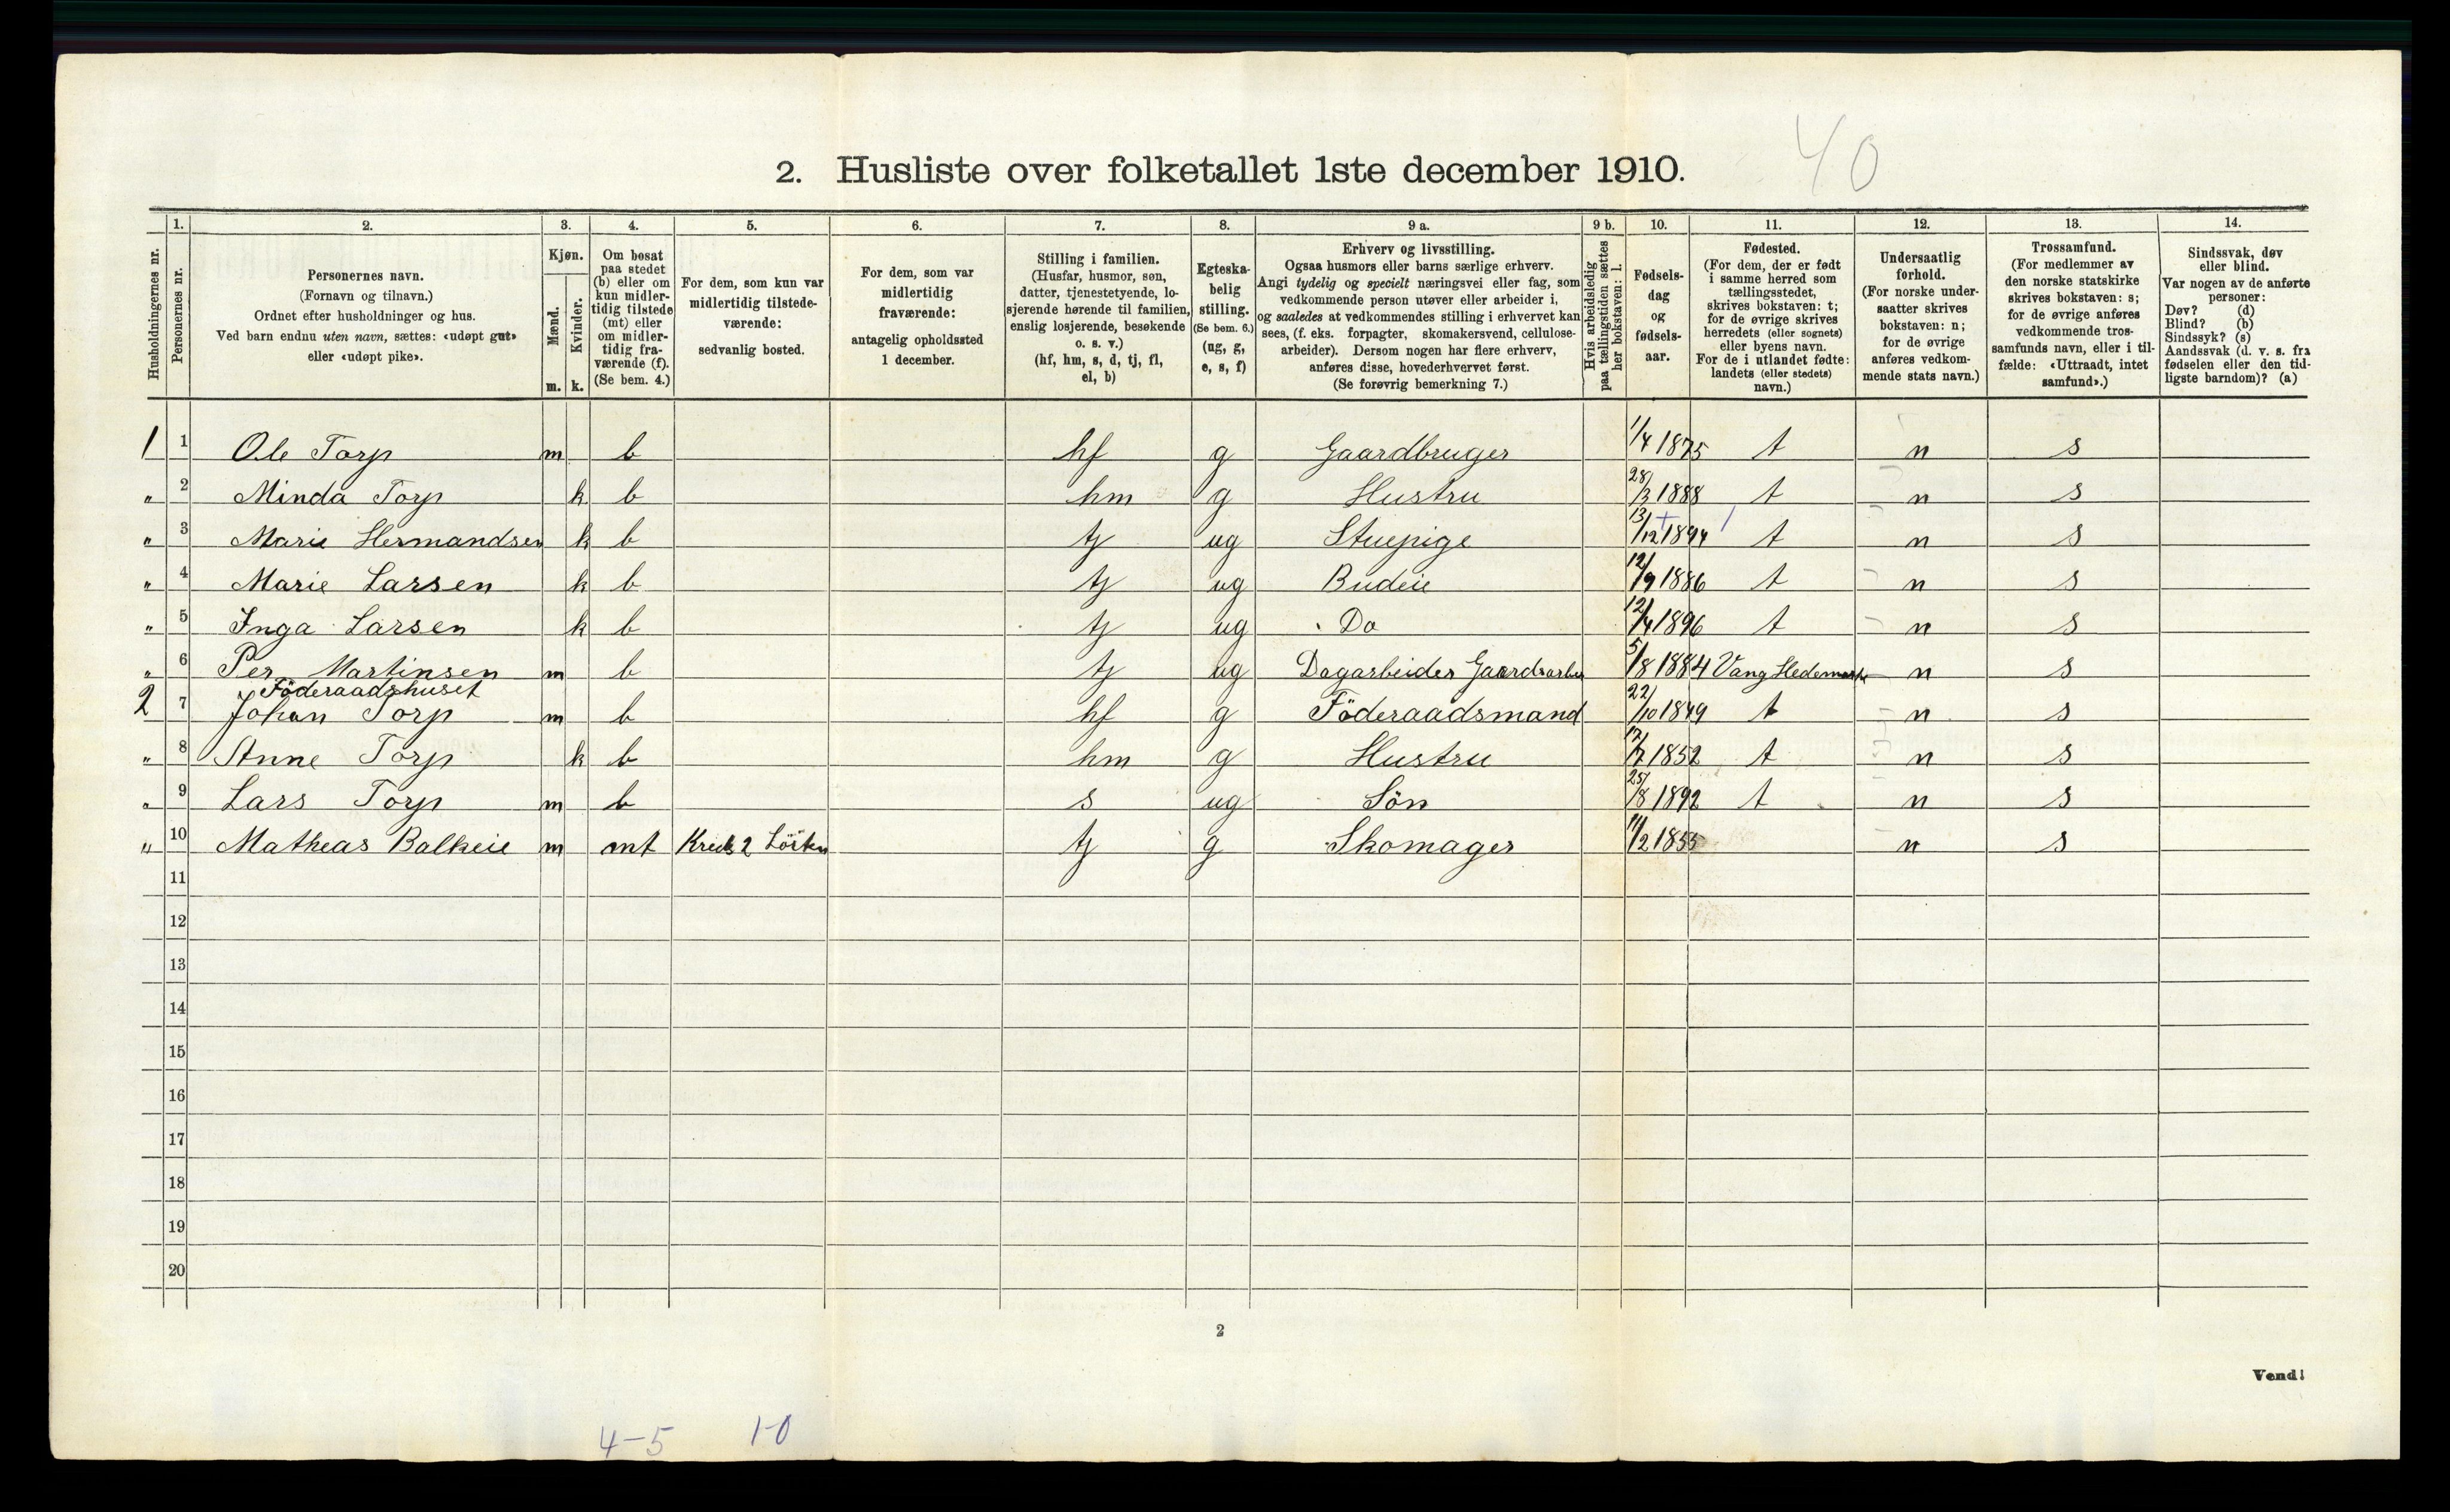 40
2. Husliste over folketallet 1ste december 1910.
Husholdningernes nr.
1. Personernes nr.
2. Personernes navn.
(Fornavn og tilnavn.)
Ordnet efter husholdninger og hus.
Ved barn endnu uten navn, sættes: «udøpt gut»
eller «udøpt pike».
3. Kjøn.
Mænd. m.
Kvinder. k.
4. Om bosat
paa stedet
(b) eller om
kun midler-
tidig tilstede
(mt) eller
om midler-
tidig fra-
værende (f).
(Se bem. 4.)
5. For dem, som kun var
midlertidig tilstede-
værende:
sedvanlig bosted.
6. For dem, som var
midlertidig
fraværende:
antagelig opholdssted
1 december.
7. Stilling i familien.
(Husfar, husmor, søn,
datter, tjenestetyende, lo-
sjerende hørende til familien,
enslig losjerende, besøkende
o. s. v.)
(hf, hm, s, d, tj, fl,
el, b)
8. Egteska-
belig
stilling.
(Se bem. 6.)
(ug, g,
e, s, f)
9 a. Erhverv og livsstilling.
Ogsaa husmors eller barns særlige erhverv.
Angi tydelig og specielt næringsvei eller fag, som
vedkommende person utøver eller arbeider i,
og saaledes at vedkommendes stilling i erhvervet kan
sees, (f. eks. forpagter, skomakersvend, cellulose-
arbeider). Dersom nogen har flere erhverv,
anføres disse, hovederhvervet først.
(Se forøvrig bemerkning 7.)
9 b. Hvis arbeidsledig
paa tællingstiden sættes
her bokstaven: l.
10. Fødsels-
dag
og
fødsels-
aar.
11. Fødested.
(For dem, der er født
i samme herred som
tællingsstedet,
skrives bokstaven: t;
for de øvrige skrives
herredets (eller sognets)
eller byens navn.
For de i utlandet fødte:
landets (eller stedets)
navn.)
12. Undersaatlig
forhold.
(For norske under-
saatter skrives
bokstaven: n;
for de øvrige
anføres vedkom-
mende stats navn.)
13. Trossamfund.
(For medlemmer av
den norske statskirke
skrives bokstaven: s;
for de øvrige anføres
vedkommende tros-
samfunds navn, eller i til-
fælde: «Uttraadt, intet
samfund».)
14. Sindssvak, døv
eller blind.
Var nogen av de anførte
personer:
Døv? (d)
Blind? (b)
Sindssyk? (s)
Aandssvak (d. v. s. fra
fødselen eller den tid-
ligste barndom)? (a)
1 1 Ole Torp m b hf g Gaardbruger 1/4 1875 t n s
" 2 Minda Torp k b hm g Hustru 28/3 1888 t n s
" 3 Marie Hermandsen k b tj ug Stuepige 13/12 1894 t n s
" 4 Marie Larsen k b tj ug Budeie 12/9 1886 t n s
" 5 Inga Larsen k b tj ug Do 12/4 1896 t n s
" 6 Per Martinsen m b tj ug Dagarbeider Gaardsarbei 5/8 1884 Vang Hedemark n s
Föderaadshuset
2 7 Johan Torp m b hf g Föderaadsmand 22/10 1849 t n s
" 8 Anne Torp k b hm g Hustru 12/7 1852 t n s
" 9 Lars Torp m b s ug Sön 25/8 1892 t n s
" 10 Matheas Balkeie m mt Kreds 2 Löiten tj g Skomager 11/2 1855 n s
11
12
13
14
15
16
17
18
19
20
2
Vend!
4-5 1-0